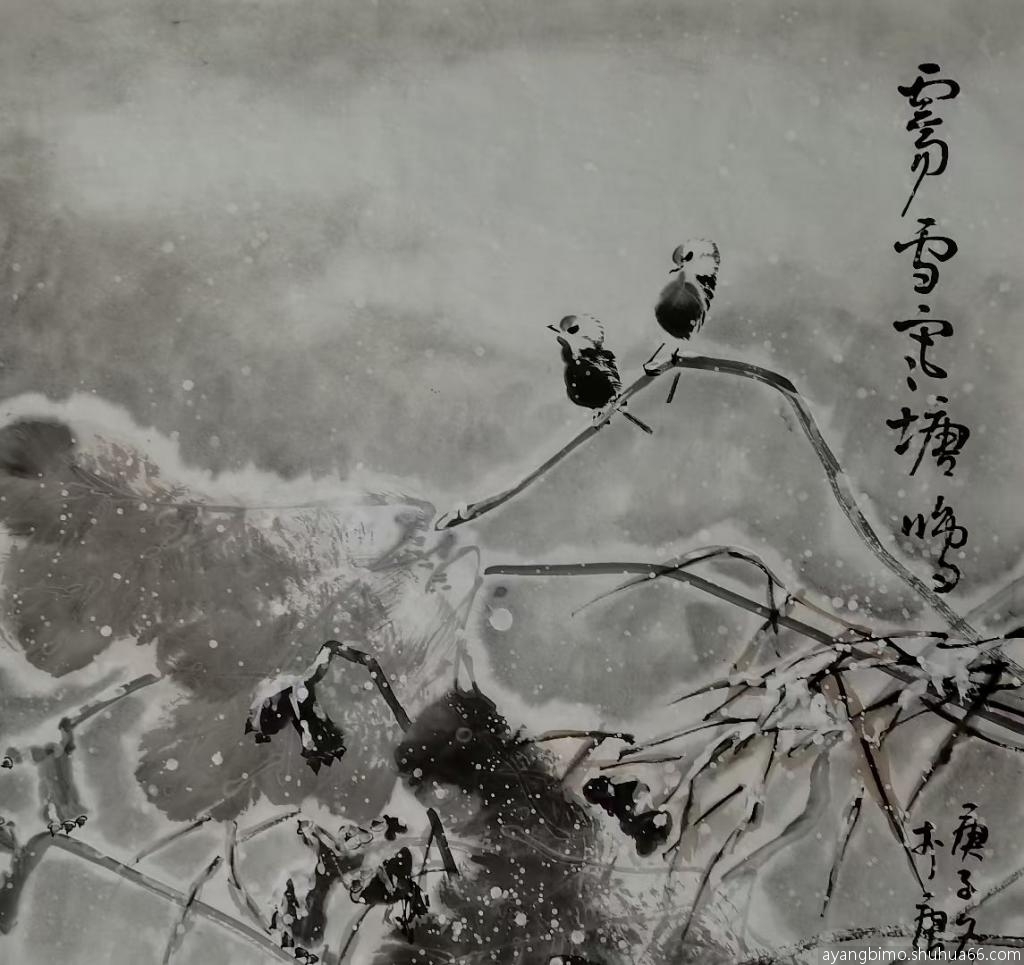 雪寒塘鳴
庚子冬
ayangbimo.shuhua66.com